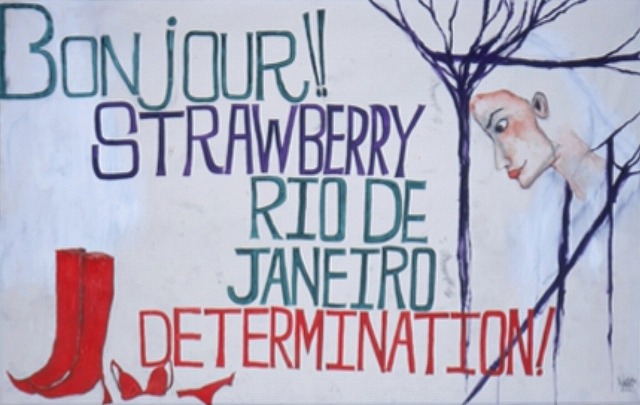 BONJOUR!!
STRAWBERRY
RIO DE
JANEIRO
DETERMINATION!